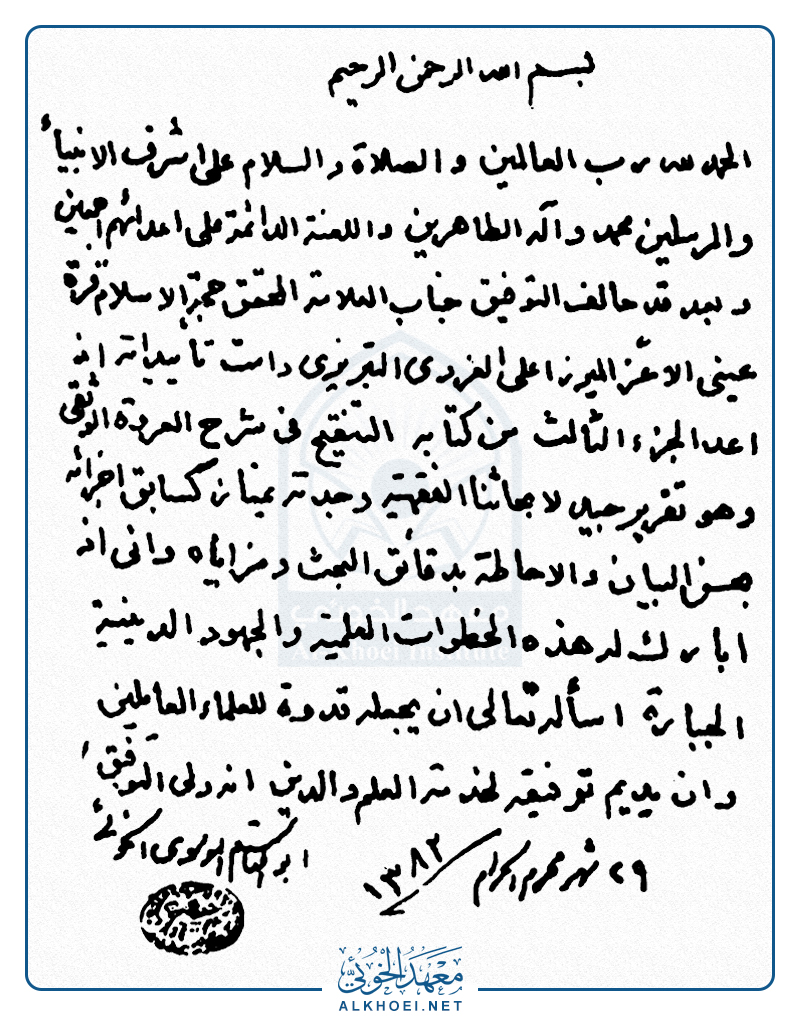 بسم الله الرحمن الرحيم
الحمد لله رب العالمين والصلاة والسلام على اشرف الانبياء
والمرسلين محمد وآله الطاهرين واللعنة الدائمة على اعدائهم اجمعين
وبعد قد حالف التوفيق جناب العلامة المحقق حجة الاسلام قرة
عيني الاعز الميرزا على الغروى التبريزى دامت تأييداته انه
اعد الجزء الثالث من كتابه التنقيح في شرح العروة الوثقى
وهو تقرير لابحاثنا الفقهية وجدته يمتاز كسابق اجزائه
بحسن البيان والاحاطة بدقائق البحث ومزاياه وانى اذ
ابارك له هذه الخطوات العلمية والجهود الدينية
الجبارة اسأله تعالى ان يجعله قدوة للعلماء العاملين
وان يديم توفيقه لخدمة العلم والدين انه ولى التوفيق
ابو القاسم الموسوى الخوئي
٢٩ شهر محرم الحرام ١٣٨٢
معهد الخوئي
Al-Khoei Institute
معهد الخوئي
ALKHOEI.NET